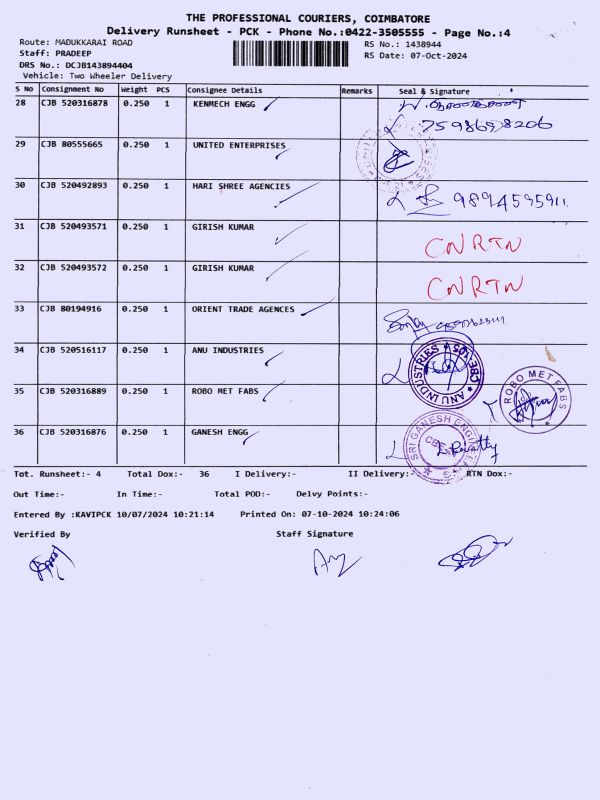 THE PROFESSIONAL COURIERS, COIMBATORE
Delivery Runsheet - PCK - Phone No.:0422-3505555 - Page No.:4
Route: MADUKKARAI ROAD RS No.: 1438944
Staff: PRADEEP RS Date: 07-Oct-2024
DRS No.: DCJB143894404
Vehicle: Two Wheeler Delivery
S No Consignment No Weight PCS Consignee Details Remarks Seal & Signature
28 CJB 520316878 0.250 1 KENMECH ENGG
7598698206
29 CJB 80555665 0.250 1 UNITED ENTERPRISES
30 CJB 520492893 0.250 1 HARI SHREE AGENCIES 9894595911
31 CJB 520493571 0.250 1 GIRISH KUMAR CNRTN
32 CJB 520493572 0.250 1 GIRISH KUMAR CNRTN
33 CJB 80194916 0.250 1 ORIENT TRADE AGENCES
34 CJB 520516117 0.250 1 ANU INDUSTRIES ANU INDUSTRIES CBE
35 CJB 520316889 0.250 1 ROBO MET FABS ROBO MET FABS
36 CJB 520316876 0.250 1 GANESH ENGG SRI GANESH ENGINEE
Revathy
Tot. Runsheet:- 4 Total Dox:- 36 I Delivery:- II Delivery:- RTN Dox:-
Out Time:- In Time:- Total POD:- Delvy Points:-
Entered By :KAVIPCK 10/07/2024 10:21:14 Printed On: 07-10-2024 10:24:06
Verified By Staff Signature